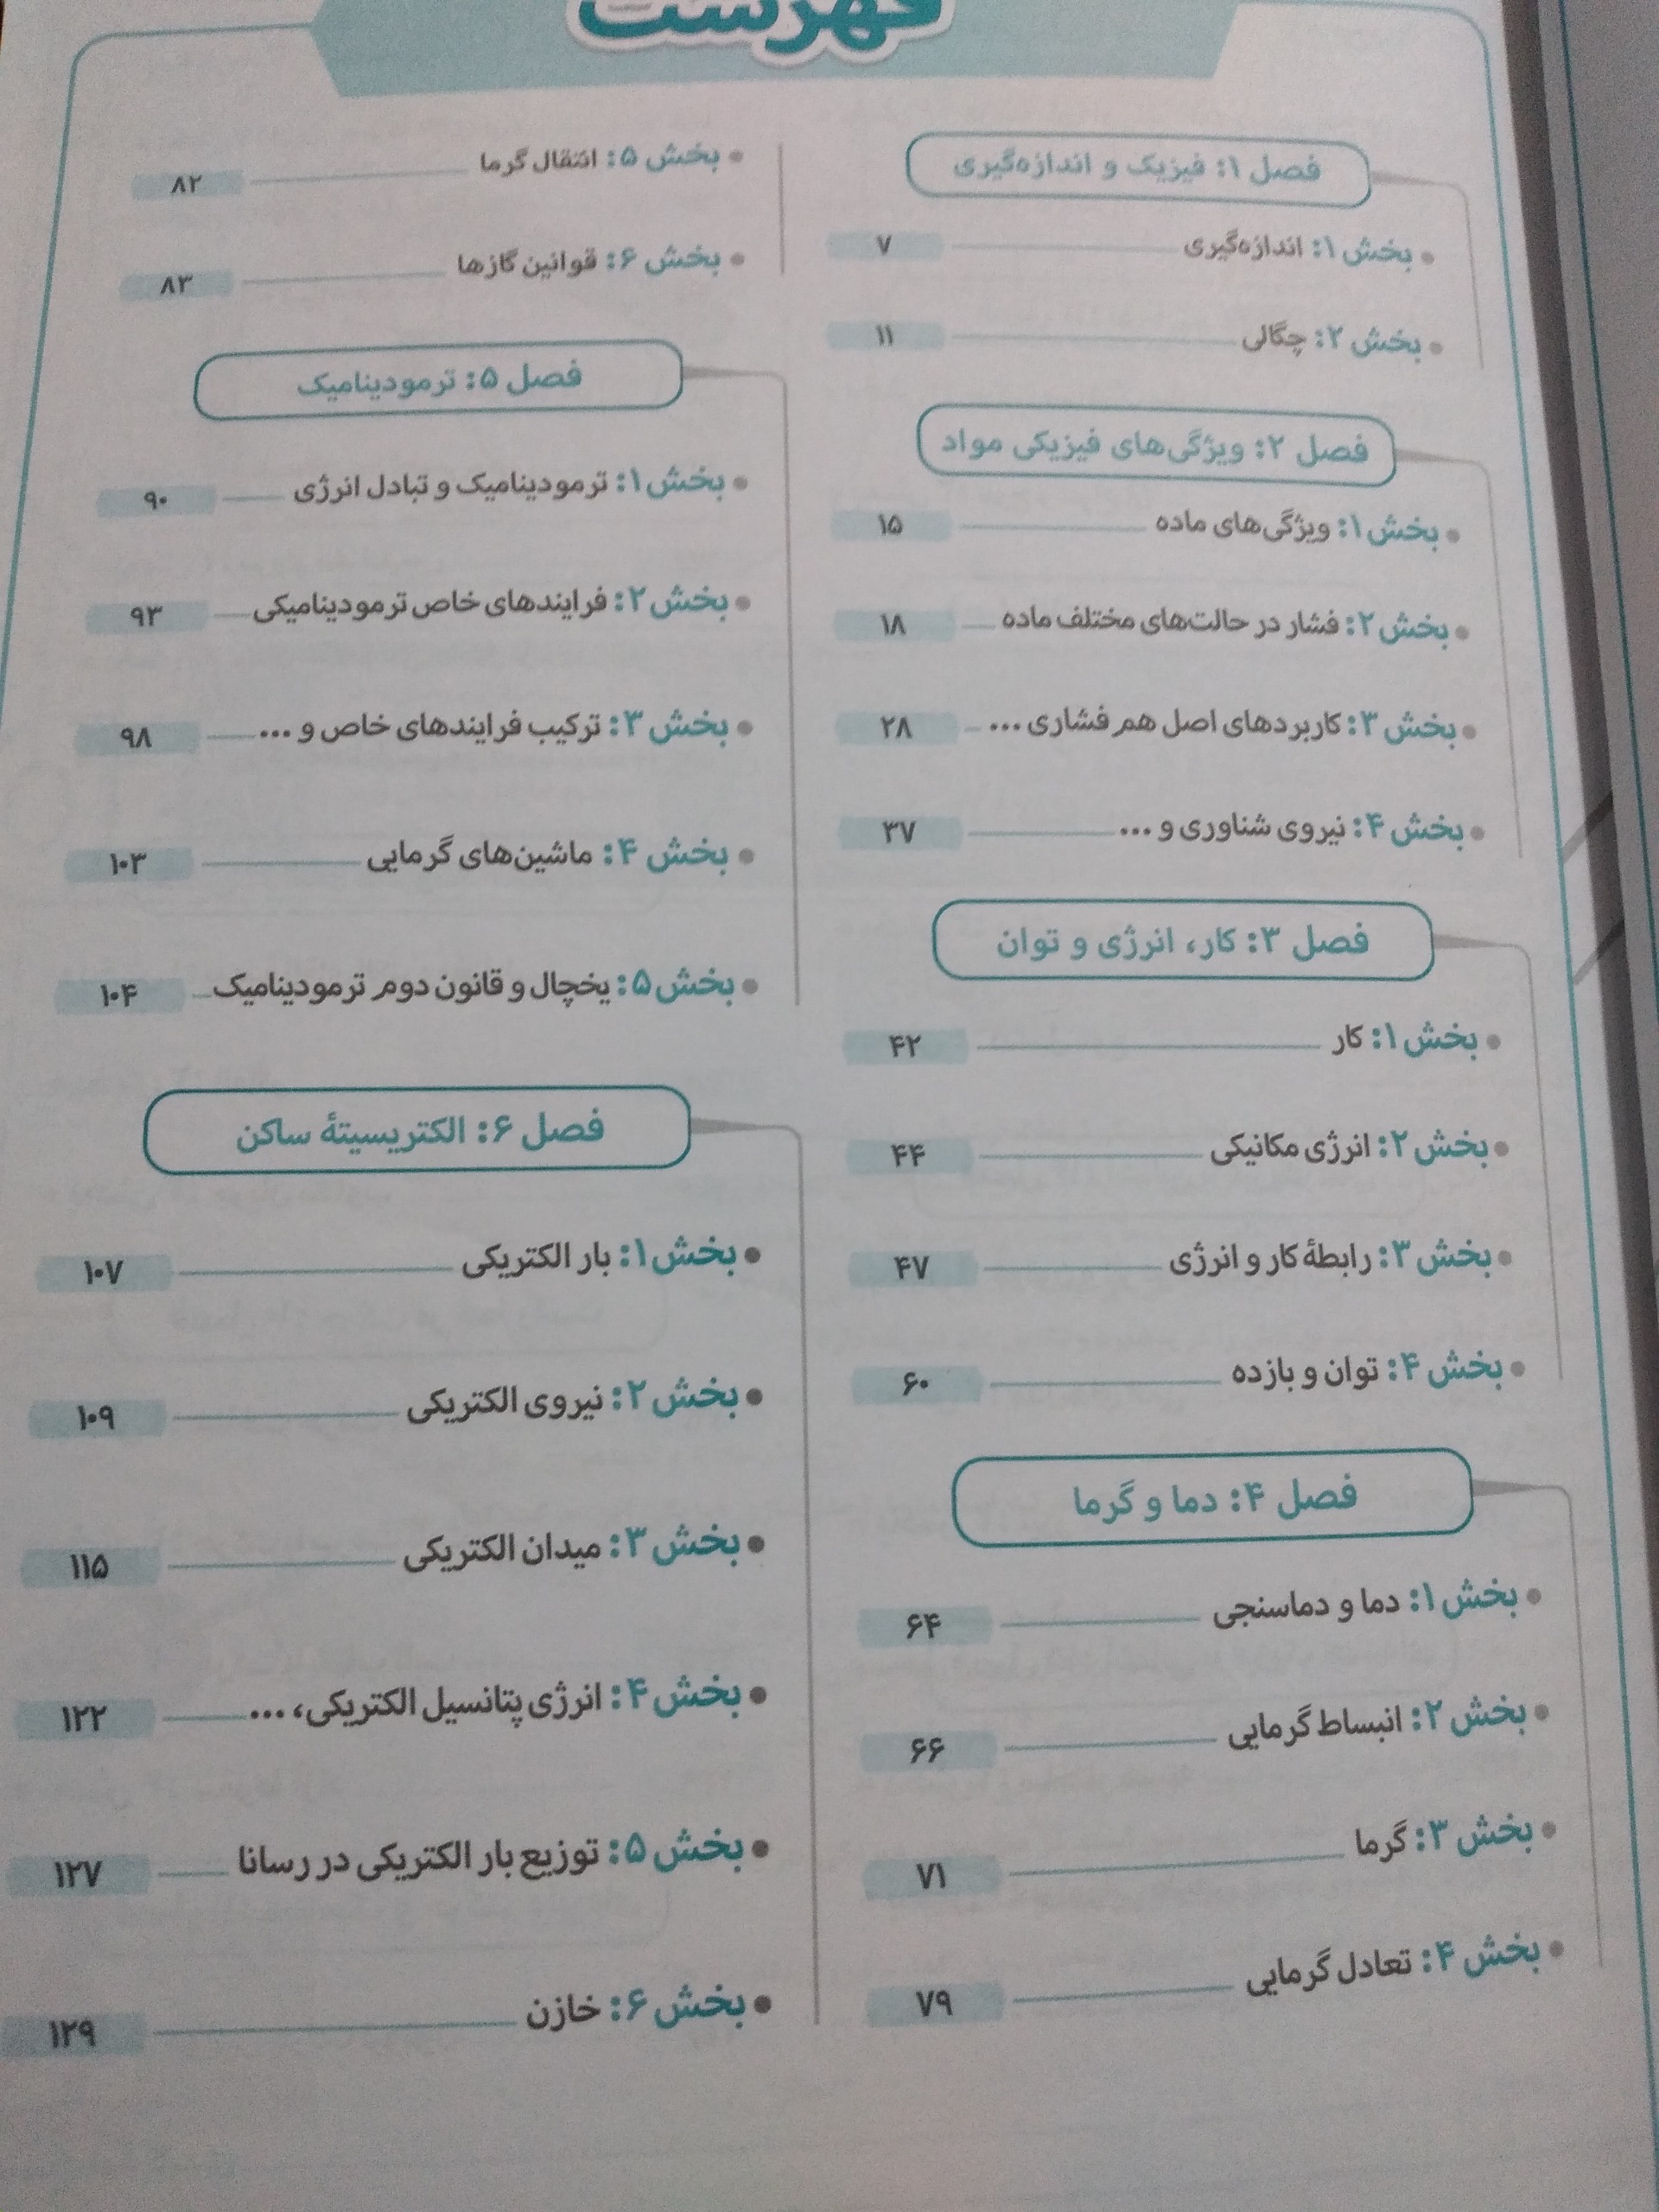 فهرست
فصل ۱: فیزیک و اندازه‌گیری
بخش ۱: اندازه‌گیری ۷
بخش ۲: چگالی ۱۱
فصل ۲: ویژگی‌های فیزیکی مواد
بخش ۱: ویژگی‌های ماده ۱۵
بخش ۲: فشار در حالت‌های مختلف ماده ۱۸
بخش ۳: کاربردهای اصل هم فشاری ... ۲۸
بخش ۴: نیروی شناوری و ... ۳۷
فصل ۳: کار، انرژی و توان
بخش ۱: کار ۴۲
بخش ۲: انرژی مکانیکی ۴۴
بخش ۳: رابطهٔ کار و انرژی ۴۷
بخش ۴: توان و بازده ۶۰
فصل ۴: دما و گرما
بخش ۱: دما و دماسنجی ۶۴
بخش ۲: انبساط گرمایی ۶۶
بخش ۳: گرما ۷۱
بخش ۴: تعادل گرمایی ۷۹
بخش ۵: انتقال گرما ۸۲
بخش ۶: قوانین گازها ۸۳
فصل ۵: ترمودینامیک
بخش ۱: ترمودینامیک و تبادل انرژی ۹۰
بخش ۲: فرایندهای خاص ترمودینامیکی ۹۳
بخش ۳: ترکیب فرایندهای خاص و ... ۹۸
بخش ۴: ماشین‌های گرمایی ۱۰۳
بخش ۵: یخچال و قانون دوم ترمودینامیک ۱۰۴
فصل ۶: الکتریسیتهٔ ساکن
بخش ۱: بار الکتریکی ۱۰۷
بخش ۲: نیروی الکتریکی ۱۰۹
بخش ۳: میدان الکتریکی ۱۱۵
بخش ۴: انرژی پتانسیل الکتریکی، ... ۱۲۲
بخش ۵: توزیع بار الکتریکی در رسانا ۱۲۷
بخش ۶: خازن ۱۲۹